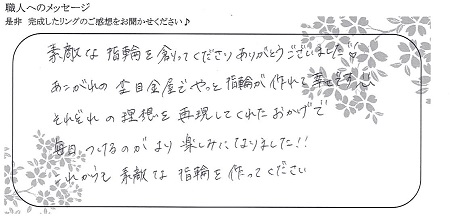 職人へのメッセージ
是非 完成したリングのご感想をお聞かせください♪
素敵な指輪を創ってくださりありがとうございました♡
あこがれの杢目金屋でやっと指輪が作れて幸せです
それぞれの理想を再現してくれたおかげで
毎日つけるのがより楽しみになりました!!
これからも素敵な指輪を作ってください